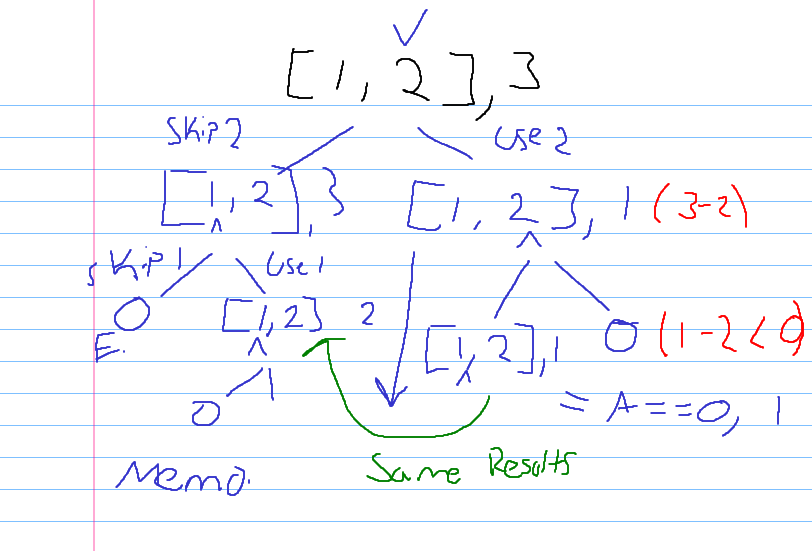 [1, 2], 3
Skip 2
Use 2
[1, 2], 3
[1, 2], 1 (3-2)
Skip 1
Use 1
0
E.
[1, 2] 2
[1, 2], 1
0 (1-2 < 0)
0
1
= A==0, 1
Same Results
Memo.